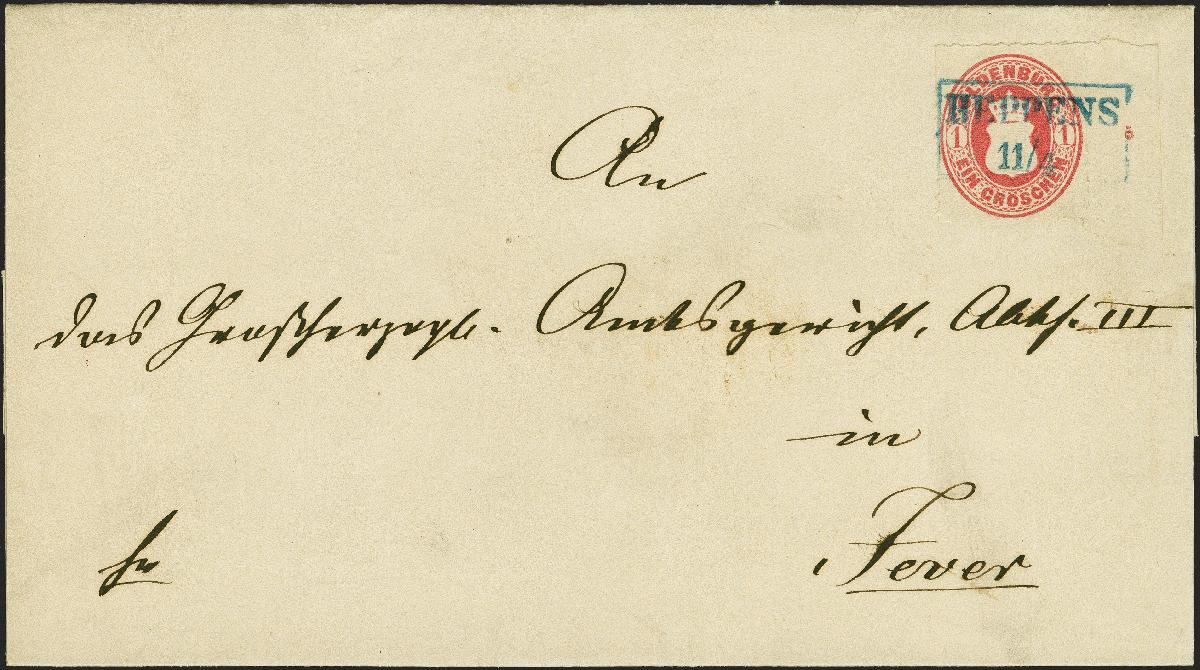 OLDENBURG
HEPPENS
1 11/4 1
EIN GROSCHEN
An
das Großherzogl. Amtsgericht, Abth. III
in
Jever